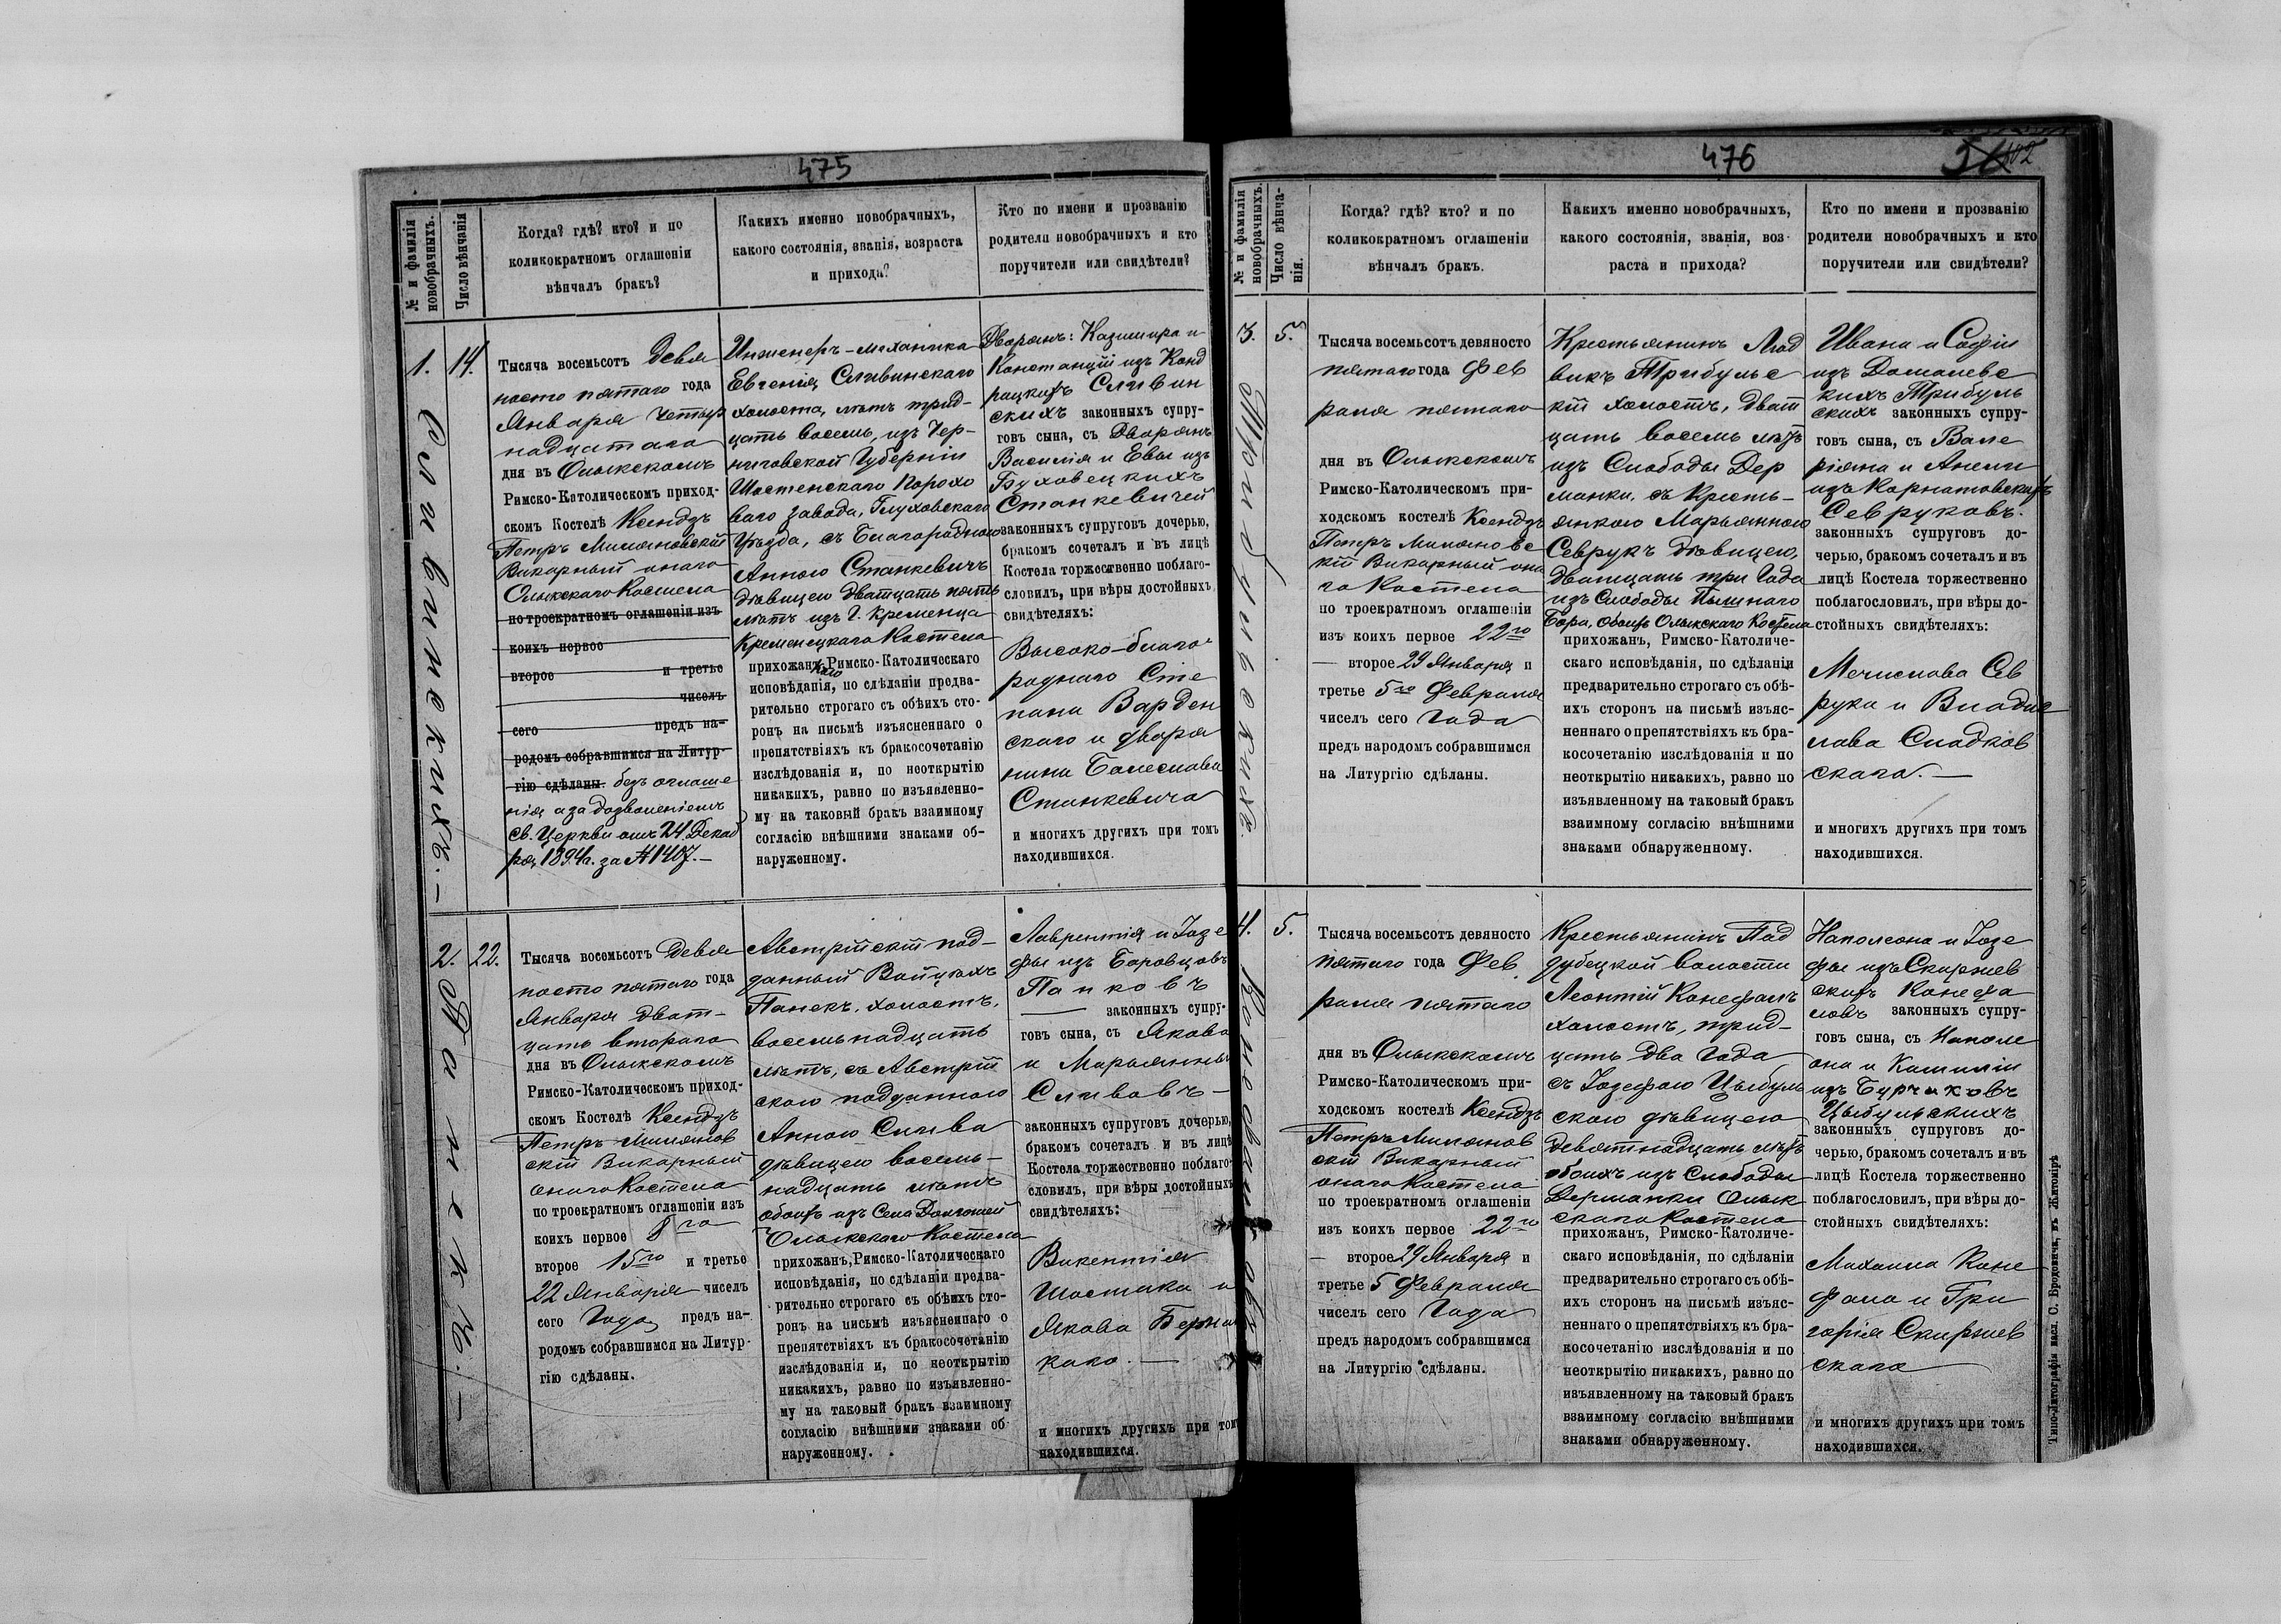 475
№ и фамилія
новобрачныхъ.
Число вѣнчанія
Когда? гдѣ? кто? и по
коликократномъ оглашеніи
вѣнчалъ бракъ?
Какихъ именно новобрачныхъ,
какого состоянія, званія, возраста
и прихода?
Кто по имени и прозванію
родители новобрачныхъ и кто
поручители или свидѣтели?
1.
Сливинскихъ.—
14.
Тысяча восемьсотъ девя
носто пятаго года
Января четыр
надцатаго
дня въ Олыкскомъ
Римско-Католическомъ приход-
скомъ Костелѣ Ксендзъ
Петръ Миляновскій
Викарный онаго
Олыкскаго Костела
по троекратномъ оглашеніи изъ
коихъ первое
второе и третье
чиселъ
сего предъ на-
родомъ собравшимся на Литур-
гію сдѣланы. безъ оглаше
нія а за дозволеніемъ
Св. Церкви отъ 24 Декаб
ря 1894 г. за № 1407.—
Инженеръ-механика
Евгенія Сливинскаго
холоста, лѣтъ трид-
цать восемь, изъ Чер-
ниговской Губерніи
Шостенскаго Порохо
ваго завода, Глуховскаго
Уѣзда, съ Благородною
Анною Станкевичъ
дѣвицею двадцать пять
лѣтъ изъ г. Кременца
Кременецкаго Костела
прихожан Римско-Католическаго
исповѣданія, по сдѣланіи предва-
рительно строгаго съ обѣихъ сто-
ронъ на письмѣ изъясненнаго о
препятствіяхъ къ бракосочетанію
изслѣдованія и, по неоткрытію
никакихъ, равно по изъявленно-
му на таковый бракъ взаимному
согласію внѣшними знаками об-
наруженному.
Дворянъ: Казимира и
Констанціи изъ Конд
рацкихъ Сливин
скихъ законныхъ супру-
говъ сына, съ Дворянъ
Василія и Евы изъ
Буховецкихъ
Станкевичей
законныхъ супруговъ дочерью,
бракомъ сочеталъ и въ лицѣ
Костела торжественно поблаго-
словилъ, при вѣры достойныхъ
свидѣтеляхъ:
Высоко-благо
роднаго Сте
пана Варден
скаго и дворя
нина Болеслава
Станкевича
и многихъ другихъ при томъ
находившихся.
2.
Панекъ.—
22.
Тысяча восемьсотъ девя
носто пятаго года
Января двад-
цать втораго
дня въ Олыкскомъ
Римско-Католическомъ приход-
скомъ Костелѣ Ксендзъ
Петръ Милянов
скій Викарный
онаго Костела
по троекратномъ оглашеніи изъ
коихъ первое 8го
второе 15го и третье
22 Января чиселъ
сего Года предъ на-
родомъ собравшимся на Литур-
гію сдѣланы.
Австрійскій под-
данный Войцѣхъ
Панекъ, холостъ,
восемьнадцать
лѣтъ, съ Австрій
скою подданною
Анною Слива
дѣвицею восемь-
надцать лѣтъ
обоихъ изъ Села Долгошей
Олыкскаго Костела
прихожанъ, Римско-Католическаго
исповѣданія, по сдѣланіи предва-
рительно строгаго съ обѣихъ сто-
ронъ на письмѣ изъясненнаго о
препятствіяхъ къ бракосочетанію
изслѣдованія и, по неоткрытію
никакихъ, равно по изъявленно-
му на таковый бракъ взаимному
согласію внѣшними знаками об-
наруженному.
Лаврентія и Іозе
фы изъ Боровцовъ
Панковъ
законныхъ супру-
говъ сына, съ Якова
и Марьянны
Сливовъ—
законныхъ супруговъ дочерью,
бракомъ сочеталъ и въ лицѣ
Костела торжественно поблаго-
словилъ, при вѣры достойныхъ
свидѣтеляхъ:
Викентія
Шостака и
Якова
и многихъ другихъ при томъ
находившихся.
476
102
№ и фамилія
новобрачныхъ.
Число вѣнча-
нія.
Когда? гдѣ? кто? и по
коликократномъ оглашеніи
вѣнчалъ бракъ.
Какихъ именно новобрачныхъ,
какого состоянія, званія, воз-
раста и прихода?
Кто по имени и прозванію
родители новобрачныхъ и кто
поручители или свидѣтели?
3.
Трибульскихъ.
5.
Тысяча восемьсотъ девяносто
пятаго года Фев
раля пятаго
дня въ Олыкскомъ
Римско-Католическомъ при-
ходскомъ костелѣ Ксендзъ
Петръ Миляновс
кій Викарный она
го Костела
по троекратномъ оглашеніи
изъ коихъ первое 22го
— второе 29 Января и
третье 5го Февраля
чиселъ сего Года
предъ народомъ собравшимся
на Литургію сдѣланы.
Крестьянинъ Люд
викъ Трибульс
кій холостъ, двад
цать восемь лѣтъ
изъ Слободы Дер
манки, съ Кресть-
янкою Марьянною
Севрукъ дѣвицею,
двадцать три Года
изъ Слободы Пыльнаго
Бора, обоихъ Олыкскаго Костела
прихожанъ, Римско-Католиче-
скаго исповѣданія, по сдѣланіи
предварительно строгаго съ обѣ-
ихъ сторонъ на письмѣ изъяс-
неннаго о препятствіяхъ къ бра-
косочетанію изслѣдованія и по
неоткрытію никакихъ, равно по
изъявленному на таковый бракъ
взаимному согласію внѣшними
знаками обнаруженному.
Ивана и Софіи
изъ Домалевс
кихъ Трибуль
скихъ законныхъ супру-
говъ сына, съ Вале
ріяна и Анели
изъ Корнатовскихъ
Севруковъ.
законныхъ супруговъ до-
черью, бракомъ сочеталъ и въ
лицѣ Костела торжественно
поблагословилъ, при вѣры до-
стойныхъ свидѣтеляхъ:
Мечислава Сев
рука и Владис
лава Сладков
скаго.—
и многихъ другихъ при томъ
находившихся.
4.
5.
Тысяча восемьсотъ девяносто
пятаго года Фев
раля пятаго
дня въ Олыкскомъ
Римско-Католическомъ при-
ходскомъ костелѣ Ксендзъ
Петръ Милянов
скій Викарный
онаго Костела
по троекратномъ оглашеніи
изъ коихъ первое 22го
— второе 29 Января и
третье 5 Февраля
чиселъ сего Года
предъ народомъ собравшимся
на Литургію сдѣланы.
Крестьянинъ Под
дубецкой волости
Леонтій Конефалъ
холостъ, трид-
цать два Года
съ Іозефою Цыбуль
скою дѣвицею
девятнадцать лѣтъ
обоихъ изъ Слободы
Дерманки Олык
скаго Костела
прихожанъ, Римско-Католиче-
скаго исповѣданія, по сдѣланіи
предварительно строгаго съ обѣ-
ихъ сторонъ на письмѣ изъяс-
неннаго о препятствіяхъ къ бра-
косочетанію изслѣдованія и по
неоткрытію никакихъ, равно по
изъявленному на таковый бракъ
взаимному согласію внѣшними
знаками обнаруженному.
Наполеона и Іозе
фы изъ Скиржев
скихъ Конефа
ловъ законныхъ супру-
говъ сына, съ Наполе
она и Камиліи
изъ Бурчаковъ
Цыбульскихъ
законныхъ супруговъ до-
черью, бракомъ сочеталъ и въ
лицѣ Костела торжественно
поблагословилъ, при вѣры до-
стойныхъ свидѣтеляхъ:
Михаила Коне
фала и Гри
горія Скиржев
скаго
и многихъ другихъ при томъ
находившихся.
Типо-Литографія насл. С. Бродовича, въ Житомірѣ